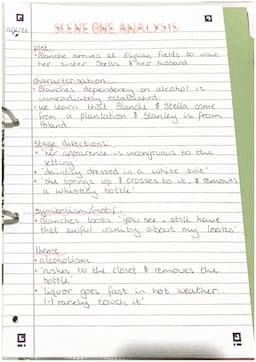 SCENE ONE ANALYSIS
plot
• Blanche arrives at Elysian Fields to visit
her sister Stella & her husband
characterisation:
• Blanches dependency on alcohol is
immediately established.
• we learn that Blanche & Stella come
from a plantation & Stanley is from
Poland.
Stage directions:
• 'her appearence is incongruous to the
setting
• 'daintily dressed in a white suit'
• 'she springs up & crosses to it, & removes
a whiskey bottle'
symbolism/motif:
• Blanches looks 'you see - still have
that awful vanity about my looks'
theme
• alcoholism
• 'rushes to the closet & removes the
bottle'
• 'liquor goes fast in hot weather.
I-I rarely touch it'